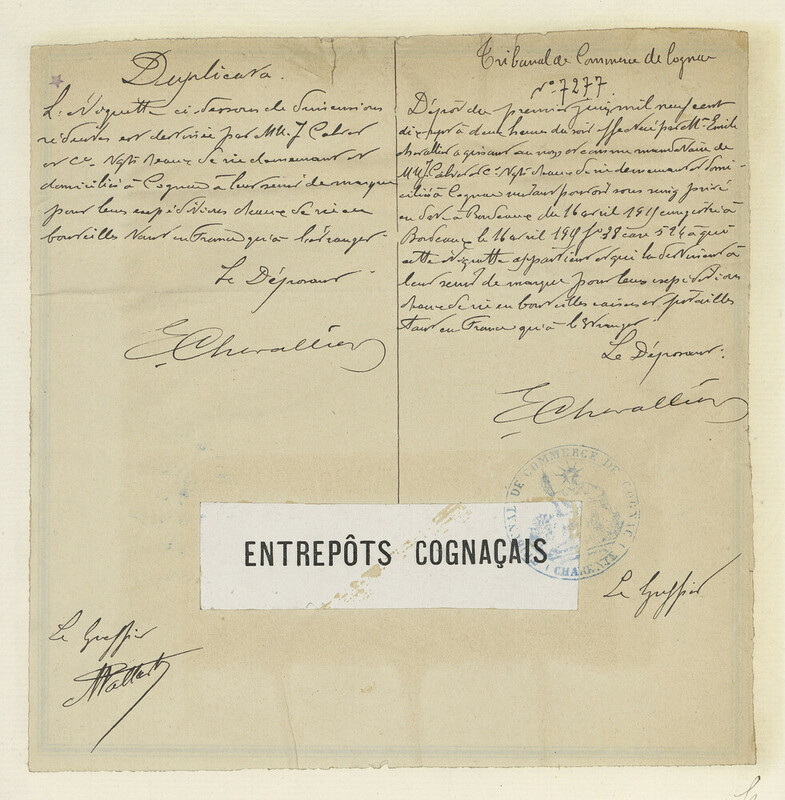 Duplicata.
La Vignette ci-dessous de dimensions
réduites est destinée par MM. J Calvet
et Cie Négts d'eaux de vie demeurant et
domiciliés à Cognac à leur servir de marque
pour leurs expéditions d'eaux de vie en
bouteilles tant en France qu'à l'étranger.
Le Déposant
E. Chevallier
Tribunal de Commerce de Cognac
No. 7277.
Dépôt du premier juin mil neuf cent
à deux heures du soir effectué par Mr. Emile
Chevallier agissant au nom et comme mandataire de
MM J Calvet et Cie Négts d'eaux de vie demeurant et domi-
ciliés à Cognac suivant pouvoir sous seing privé
en date à Bordeaux du 16 avril enregistré à
Bordeaux le 16 avril fo 38 case 524 à qui
cette vignette appartient et qui la destinent à
leur servir de marque pour leurs expéditions
d'eaux de vie en bouteilles caisses et futailles
tant en France qu'à l'Etranger.
Le Déposant.
E. Chevallier
TRIBUNAL DE COMMERCE DE COGNAC
(CHARENTE)
ENTREPÔTS COGNAÇAIS
Le Greffier
Le Greffier